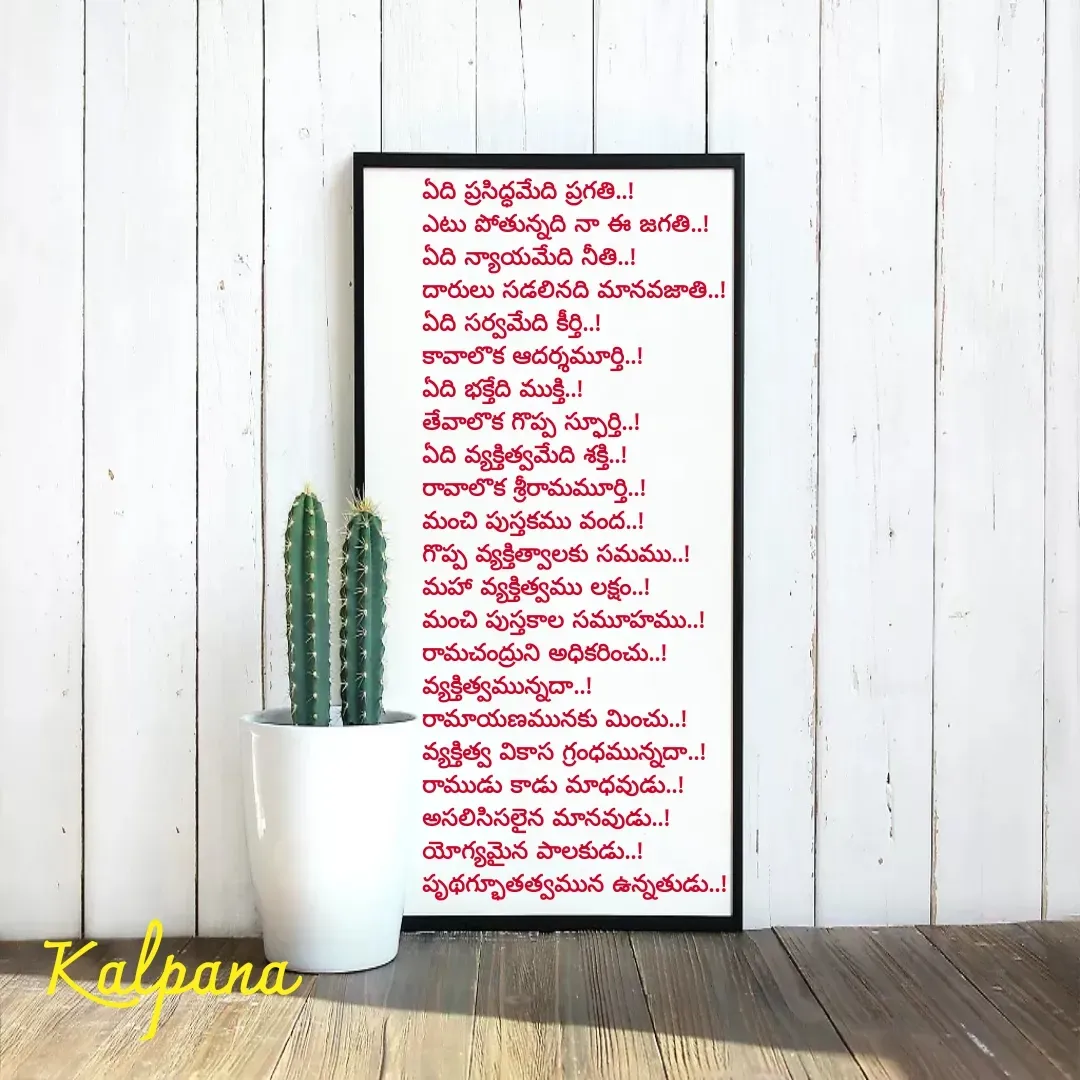 ఏది ప్రసిద్ధమేది ప్రగతి..!
ఎటు పోతున్నది నా ఈ జగతి..!
ఏది న్యాయమేది నీతి..!
దారులు సడలినది మానవజాతి..!
ఏది సర్వమేది కీర్తి..!
కావాలొక ఆదర్శమూర్తి..!
ఏది భక్తేది ముక్తి..!
తేవాలొక గొప్ప స్ఫూర్తి..!
ఏది వ్యక్తిత్వమేది శక్తి..!
రావాలొక శ్రీరామమూర్తి..!
మంచి పుస్తకము వంద..!
గొప్ప వ్యక్తిత్వాలకు సమము..!
మహా వ్యక్తిత్వము లక్షం..!
మంచి పుస్తకాల సమూహము..!
రామచంద్రుని అధికరించు..!
వ్యక్తిత్వమున్నదా..!
రామాయణమునకు మించు..!
వ్యక్తిత్వ వికాస గ్రంధమున్నదా..!
రాముడు కాడు మాధవుడు..!
అసలిసిసలైన మానవుడు..!
యోగ్యమైన పాలకుడు..!
పృథగ్భూతత్వమున ఉన్నతుడు..!
Kalpana